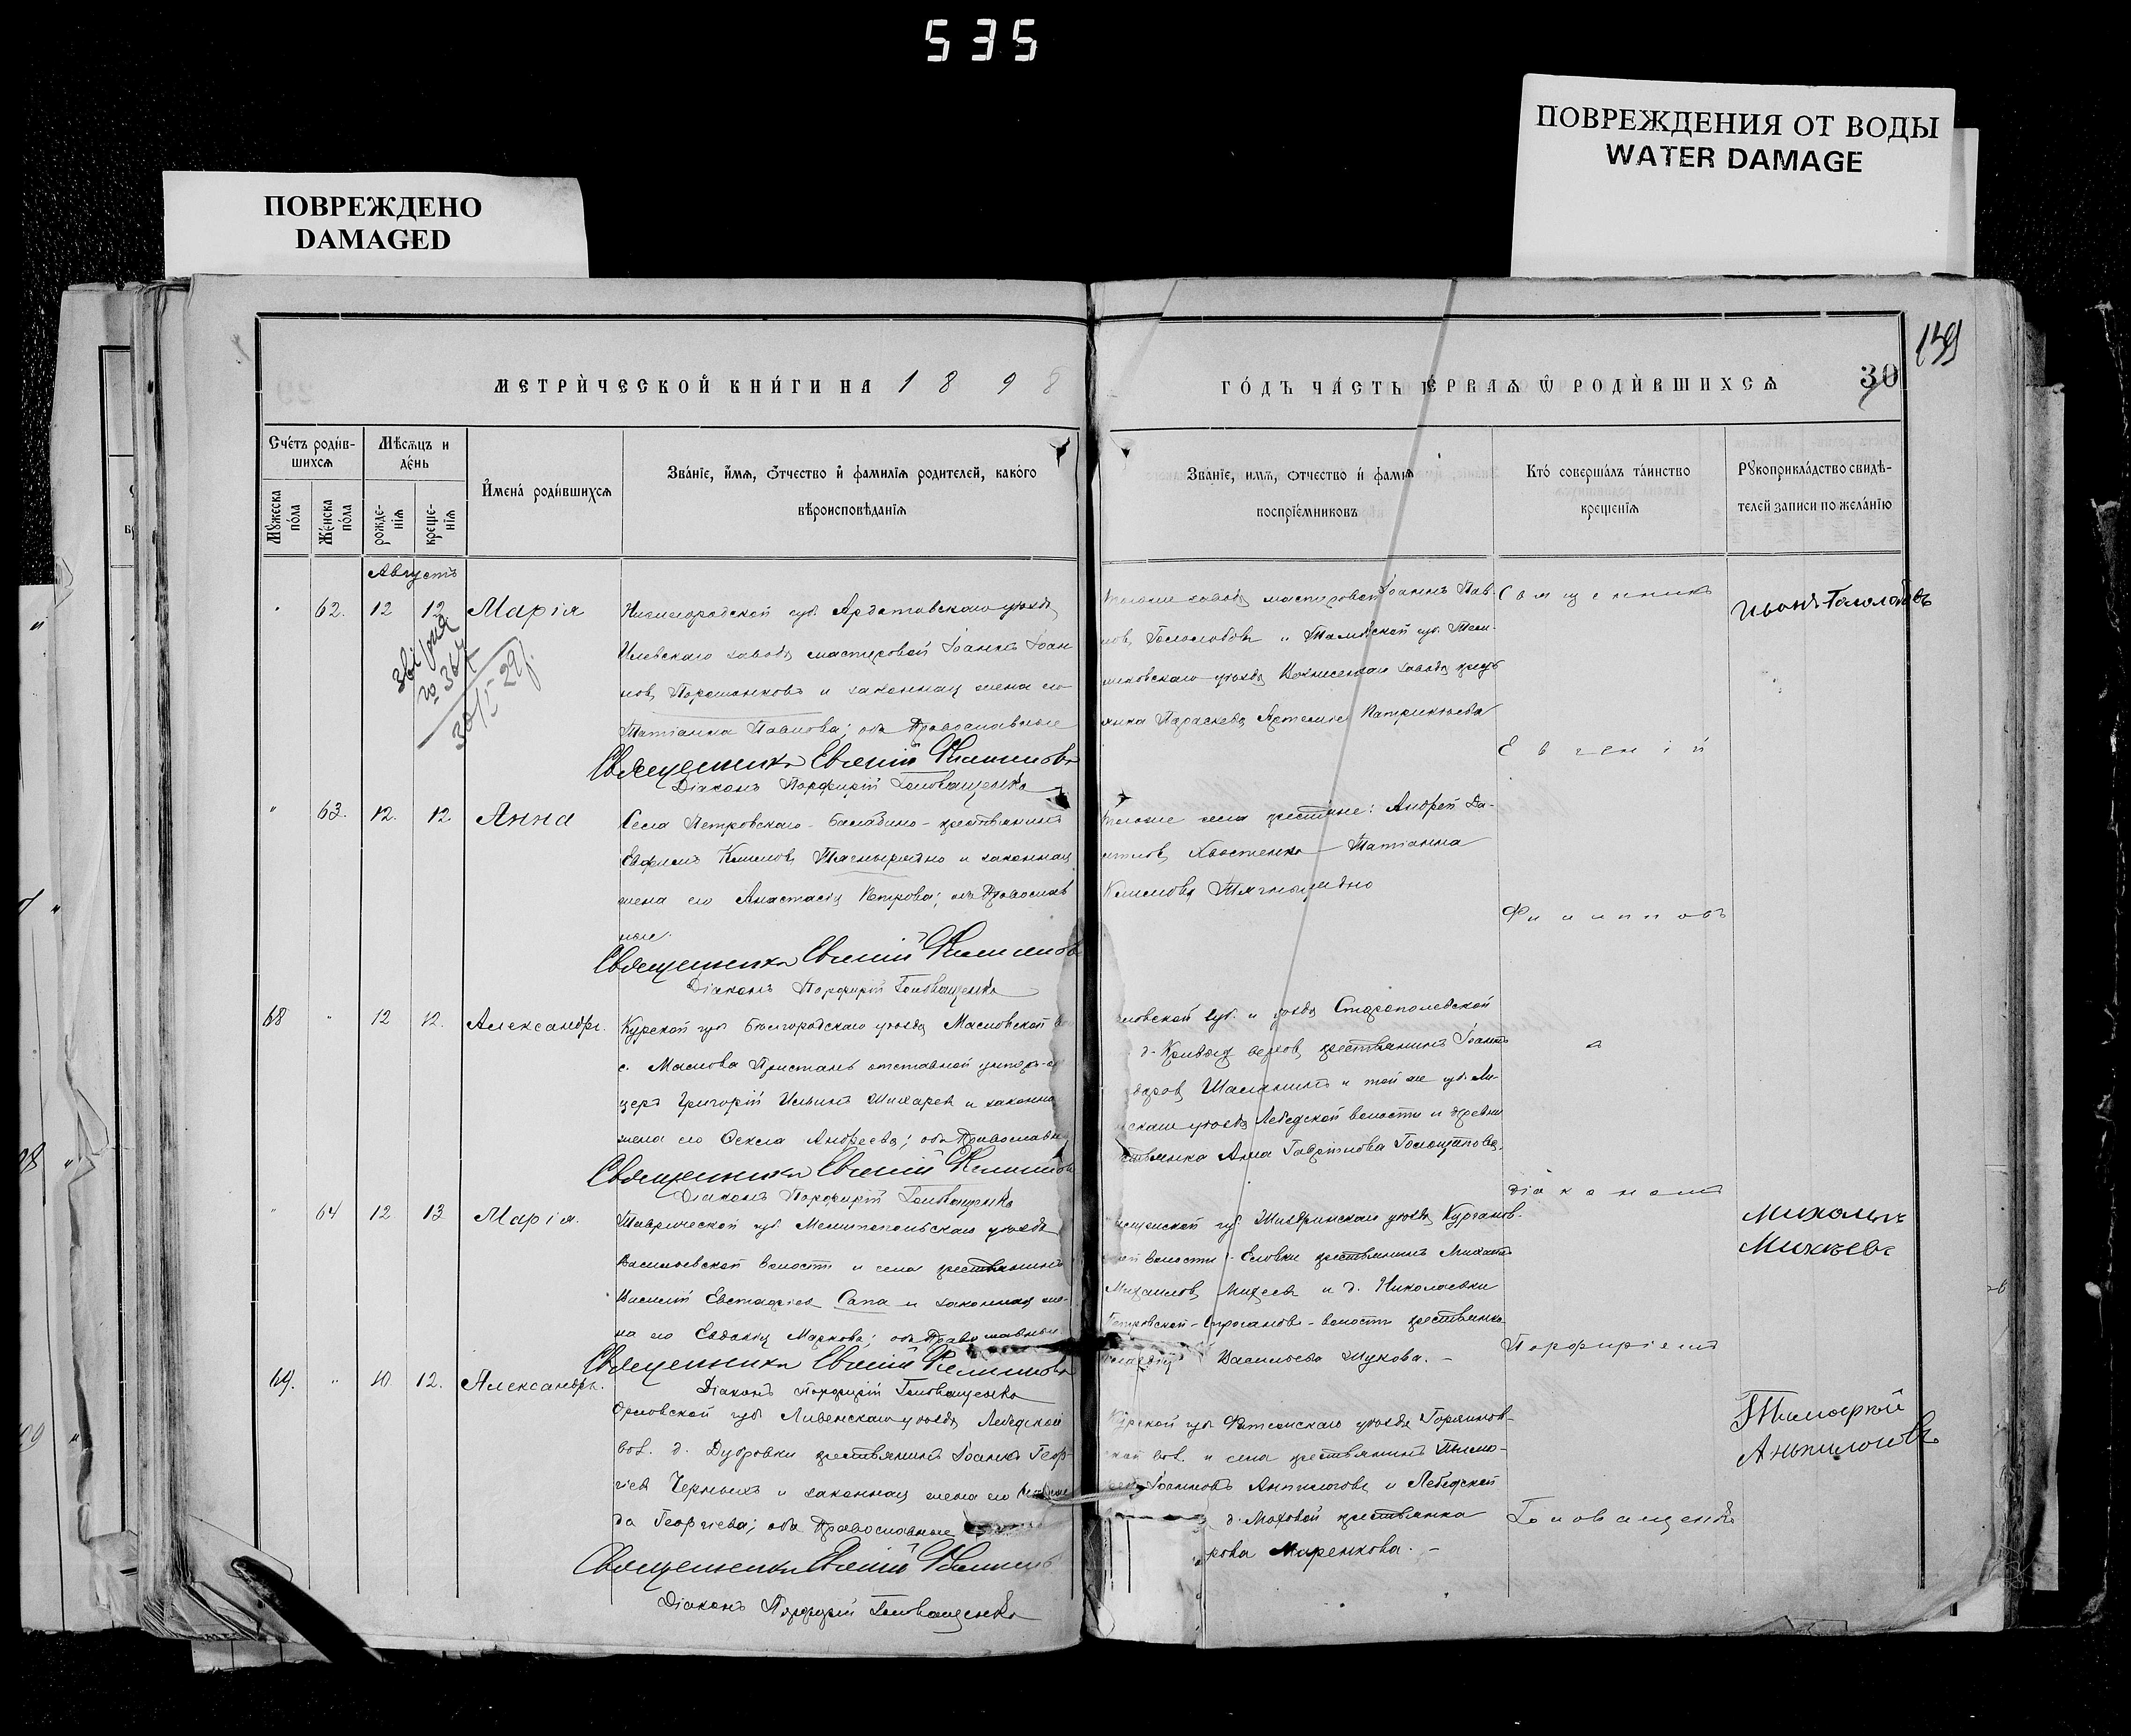 535
ПОВРЕЖДЕНО
DAMAGED
ПОВРЕЖДЕНИЯ ОТ ВОДЫ
WATER DAMAGE
МЕТРИ́ЧЕСКОЙ КНИ́ГИ НА 1898
ГО́ДЪ ЧА́СТЬ ПЕ́РВАѦ Ѿ РОДИ́ВШИХСѦ
30
149
Сче́тъ роди́в-
шихсѧ
Мѣ́сѧцъ и
де́нь
Мꙋ́жеска
по́ла
Же́нска
по́ла
рожде́-
нїѧ
креще́-
нїѧ
И҆мена̀ роди́вшихсѧ
Зва́нїе, и҆́мѧ, ѻ҆́тчество и҆ фами́лїѧ роди́телей, како́го
вѣроисповѣ́данїѧ
Зва́нїе, имѧ, ѻтчество и҆ фамилїѧ
воспрїе́мниковъ
Кто̀ соверша́лъ та́инство
креще́нїѧ
Рꙋкоприкла́дство свидѣ́-
телей записи по жела́нїю
Августъ
62. 12 12 Марія
Нижегородской губ. Ардатовскаго уѣзда
Илевскаго завода мастеровой Іоаннъ Іоан
новъ Порошенковъ и законная жена его
Татіанна Павлова; оба Православные
Священникъ Евгеній Филипповъ
Діаконъ Порфирій Головащенко
завода мастеровой Іоаннъ Пав-
новъ Голослобовъ и Тамбовской губ. Тем-
никовскаго уѣзда Вознесенскаго завода кресть
янка Параскева Артемиева Патрикѣева
Священникъ
Евгеній
Филипповъ
63. 12. 12 Анна
Села Петровскаго-Балабино-крестьянинъ
Евфимъ Климовъ Тягнырядно и законная
жена его Анастасія Петрова; оба Православ
ные.
Священникъ Евгеній Филипповъ
Діаконъ Порфирій Головащенко
села крестьяне: Андрей Да-
ниловъ Хвостенко Татіанна
Климова Тягнырядно
68 " 12 12. Александръ.
Курской губ Бѣлгородскаго уѣзда Масловской
с. Маслова Пристань отставной унтеръ-
церъ Григорій Ильинъ Шихарев и законна
жена его Ѳекла Андреева; оба Православн
Священникъ Евгеній Филипповъ
Діаконъ Порфирій Головащенко
ловской губ. и уѣзда Старопольской
крестьянинъ Іоаннъ
и той же губ. Ли-
скаго уѣзда Лебедской волости и деревни
стьянка Анна Гаврилова Голощапова.
діакономъ
" 64 12 13 Марія.
Таврической губ. Мелитопольскаго уѣзда
Васильевской волости и села крестьянинъ
Василій Евстафіев Сапа и законная же-
на его Евдокія Маркова; оба Православные
Священникъ Евгеній Филипповъ
Діаконъ Порфирій Головащенко
губ. Шадринскаго уѣзда Курганов-
волости Еловки крестьянинъ Михаилъ
Михаиловъ Михеевъ и д. Николаевки
Петровской-Строганов-волости крестьянка
Васильева Жукова. -
Порфиріемъ
69. " 10. 12. Александръ.
Орловской губ Ливенскаго уѣзда Лебедской
вол. д. Дубровки крестьянинъ Іоаннъ Геор-
гіев Черныхъ и законная жена его
да Георгіева; оба Православные
Священникъ Евгеній Филипповъ
Діаконъ Порфирій Головащенко
Курской губ Фатежскаго уѣзда
вол. и села крестьянинъ Тимо-
Іоанновъ Анпилогов и Лебедской
д. Моховой крестьянка
Маренкова. -
Головащенко
Михаилъ
Михеевъ
Тимофѣй
Анпилоговъ